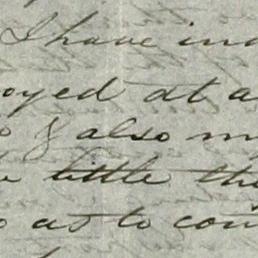 I have in
oyed at a
& also m
little th
as to con